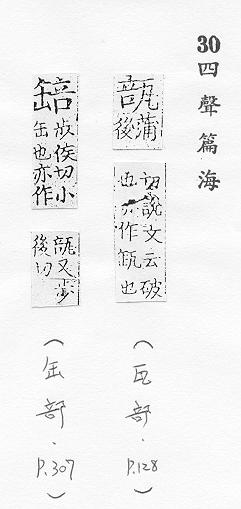 30四聲篇海
瓿蒲後
切說文云破
也亦作也
䍌步侯切小
缶也亦作
瓿又步
後切
（瓦部．P.128）
（缶部．P.307）